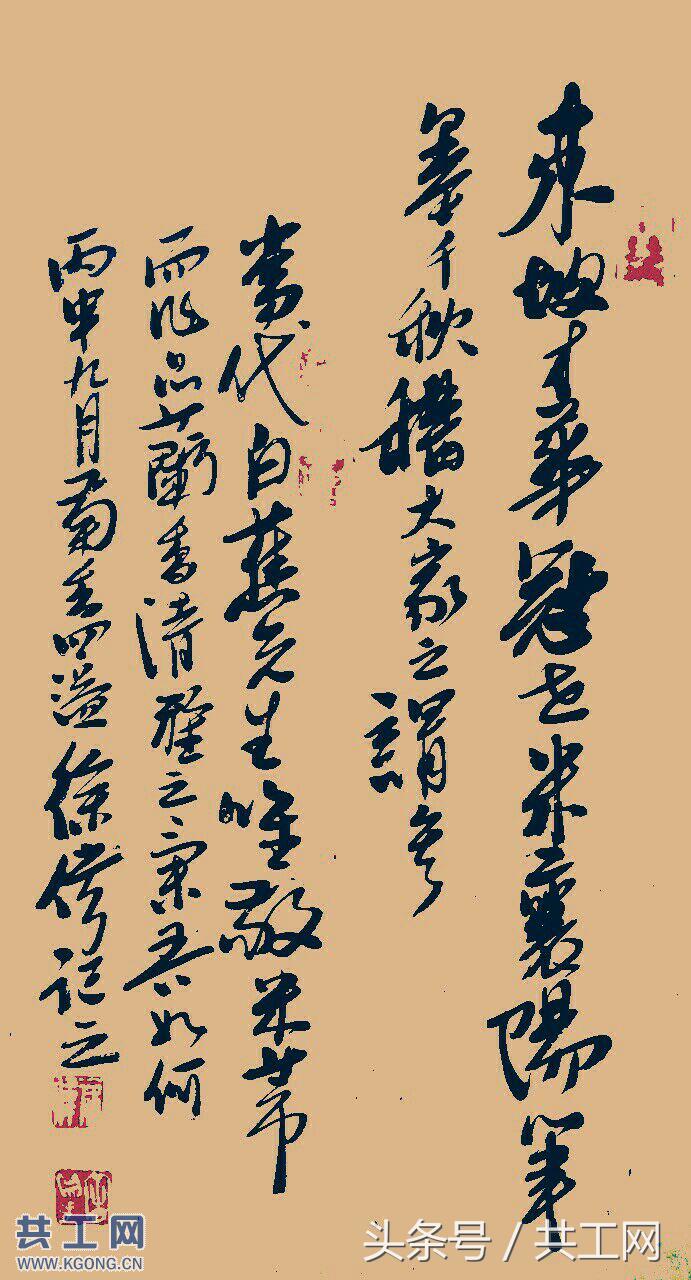 東坡才華冠世米襄陽筆
墨千秋大家之謂矣
當代白蕉先生唯敬米芾
而作品蘭香清雅之如何
丙申九月菊香四溢徐記之
共工网
www.KGONG.CN
头条号 / 共工网